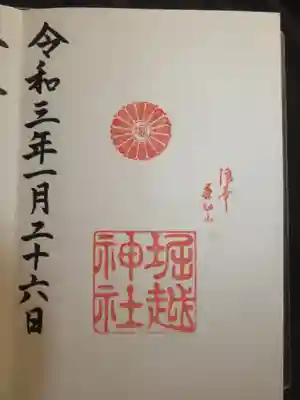 浪華
堀越
神社
令和三年一月二十六日